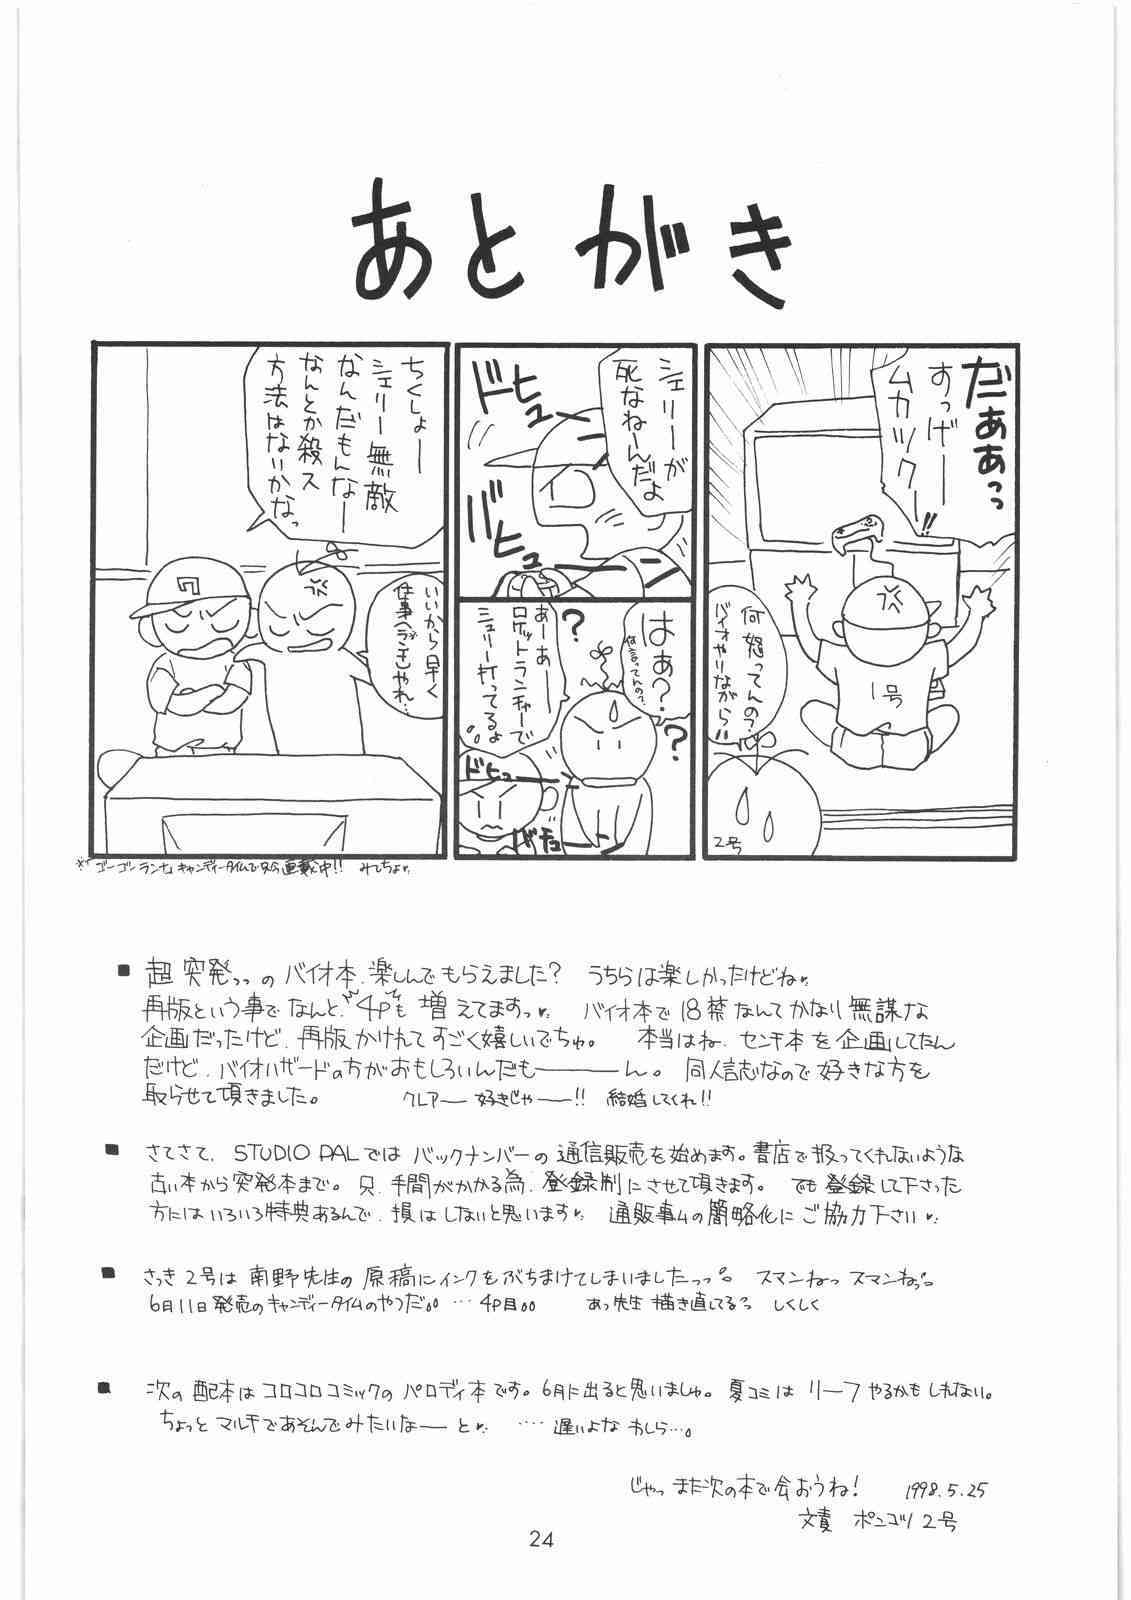 あとがき
だああっっ
すっげー
ムカツクー!!
何怒ってんの?
バイオやりながら!!
1号
2号
シェリーが
死なねーんだよ
ドヒューーン
バヒューーン
はぁ?
何言ってんの?
?
?
あーあー
ロケットランチャーで
シェリー打ってるよ
ドヒューーン
バチューーン
ちくしょー
シェリー無敵
なんだもんなー
なんとか殺ス
方法はないかなっ
いいから早く
仕事へランチしやれ
みてちょ♥
■ 超突発っっのバイオ本、楽しんでもらえました? うちらは楽しかったけどね♥
再版という事でなんと、4Pも増えてますっ♥ バイオ本で18禁なんてかなり無謀な
企画だったけど、再版かけれてすごく嬉しいでちゅ。 本当はね、センチ本を企画してたん
だけど、バイオハザードの方がおもしろいんだもーーーん。 同人誌なので好きな方を
取らせて頂きました。 クレアー 好きじゃー!! 結婚してくれ!!
■ さてさて、STUDIO PALではバックナンバーの通信販売を始めます。書店で扱ってくれないような
古い本から突発本まで。只、手間がかかる為、登録制にさせて頂きます。 でも登録して下さった
方にはいろいろ特典あるんで、損はしないと思います♥ 通販事ムの簡略化にご協力下さい♥
■ さっき2号は南野先生の原稿にインクをぶちまけてしまいましたっっ。 スマンねっ スマンねっ。
6月11日発売のキャンディータイムのやつだ。。 …4P目。。 あっ先生描き直してるっ しくしく
■ 次の配本はコロコロコミックのパロディ本です。6月に出ると思いましゅ。夏コミはリーフやるかもしれない。
ちょっとマルチであそんでみたいなーと♥ …遅いよな わしら…。
じゃっ また次の本で会おうね! 1998.5.25
文責 ポンコツ2号
24